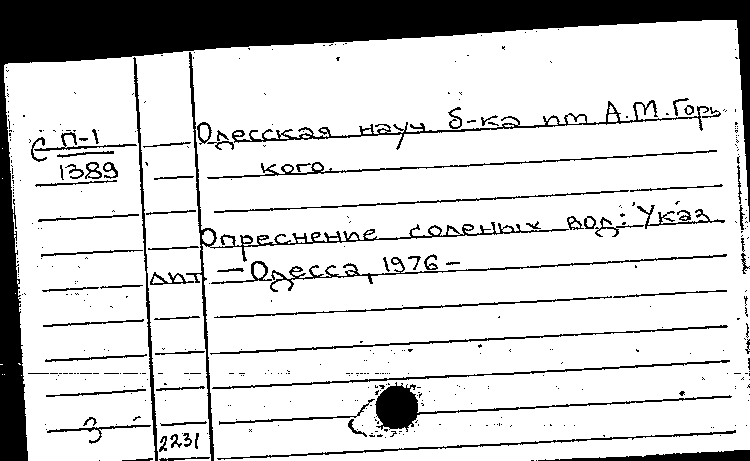 С П-1
1389
Одесская науч б-ка им А.М.Горь
кого.
Опреснение соленых вод: Указ
лит. — Одесса, 1976 –
3
2231